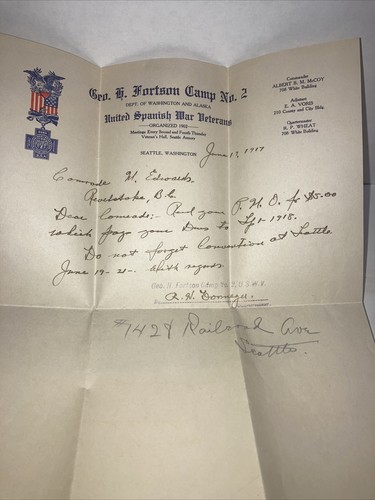 Geo. H. Fortson Camp No. 2
DEPT. OF WASHINGTON AND ALASKA
United Spanish War Veterans
ORGANIZED 1902
Meetings Every Second and Fourth Thursday
Veteran's Hall, Seattle Armory
SEATTLE, WASHINGTON
Commander
ALBERT B. M. McCOY
709 White Building
Adjutant
E. A. VORIS
210 County and City Bldg.
Quartermaster
R. P. WHEAT
709 White Building
June 1917
Comrade H. Edwards
B.C.
Dear Comrade:- Recd your P.M.O. for $5.00
which pays your Dues to 1918.
Do not forget Convention at Seattle
June 19-21- With regards
Geo. H. Fortson Camp No. 2, U.S.W.V.
R. H.
#1424 Railroad Ave
Seattle.